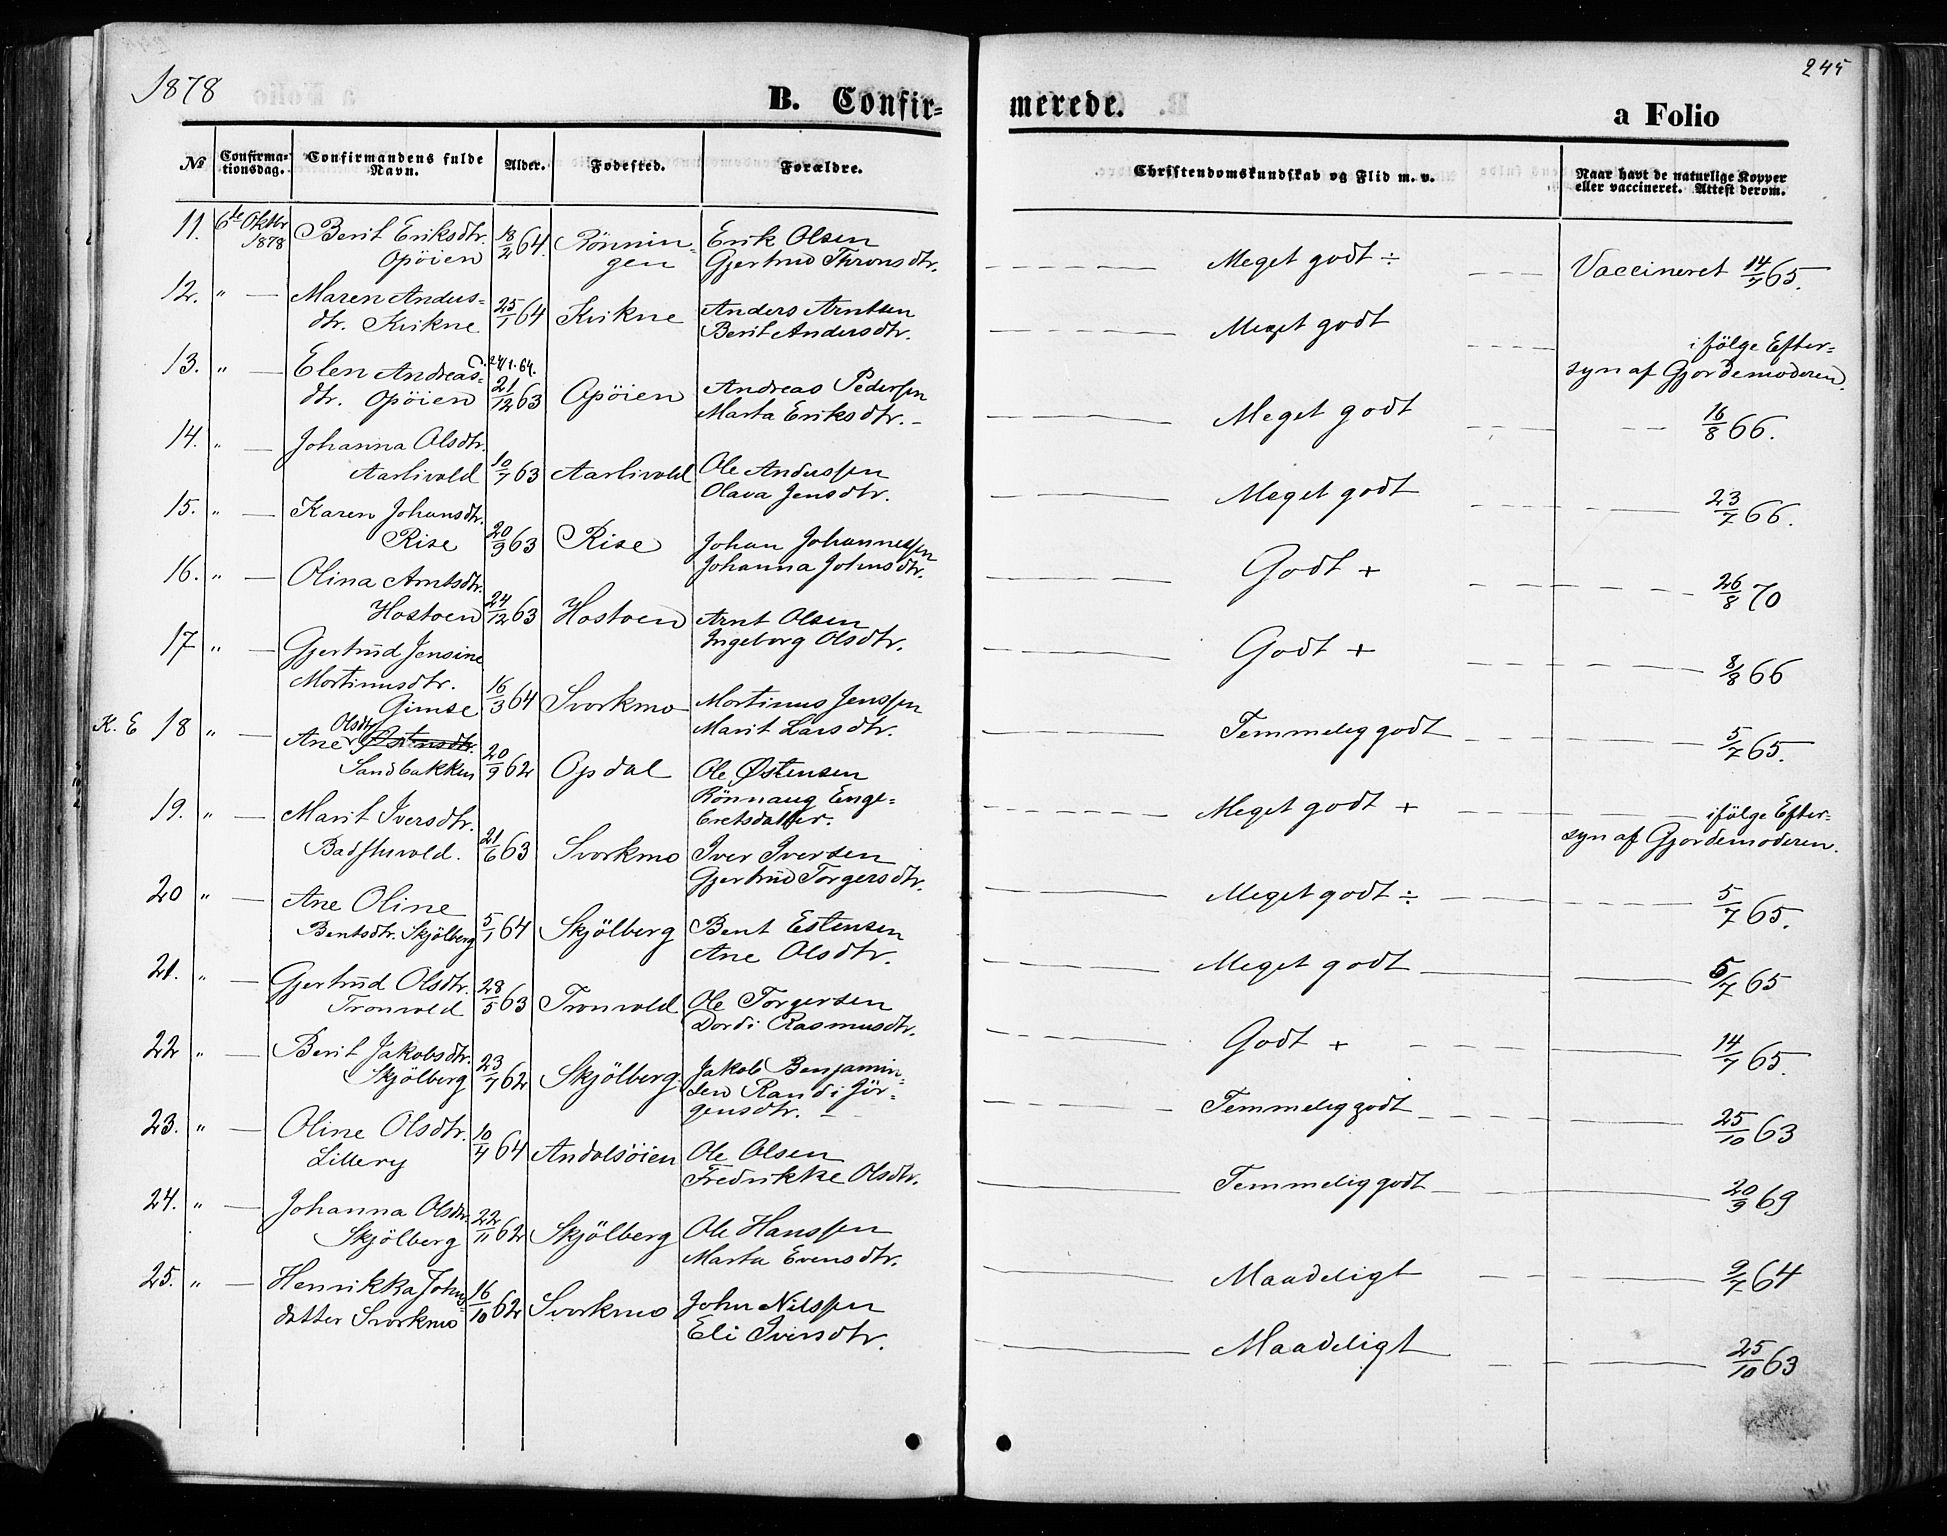 1878
245
B. Confir=
merede.
a Folio
No
Confirma=
tionsdag.
Confirmandens fulde
Navn.
Alder.
Fødested.
Forældre.
Christendomskundskab og Flid m. v.
Naar havt de naturlige Kopper
eller vaccineret. Attest derom.
11. 6te Oktbr 1878 Berit Eriksdtr. Opöien 18/2 64. Rönningen Erik Olsen Gjertrud Thronsdtr. Meget godt ÷ Vaccineret 14/7 65.
12. " — Maren Anders=dtr. Kvikne 25/1 64 Kvikne Anders Arntsen Berit Andersdtr. Meget godt ifölge Eftersyn af Gjordemoderen.
13. " — Elen Andreas=dtr. Opöien 24/1. 64. 21/12 63 Opöien Andreas Pedersen Marta Eriksdtr. Meget godt 16/8 66.
14. " — Johanna Olsdtr. Aarlivold 10/7 63 Aarlivold Ole Anderssen Olava Jensdtr. Meget godt 23/7 66.
15. " — Karen Johansdtr. Rise 20/9 63 Rise Johan Johannessen Johanna Johnsdtr. Godt + 26/8 70
16. " — Olina Arntsdtr. Hostoen 24/12 63 Hostoen Arnt Olsen Ingeborg Olsdtr. Godt + 8/8 66
17 " — Gjertrud Jensine Mortinusdtr. Gimse 16/3 64 Svorkmo Mortinus Jenssen Marit Larsdtr. Temmelig godt 5/7 65.
K. E 18 " — Ane Olsdtr. Østensdtr. Sandbakken 20/9 62 Opdal Ole Østensen Rönnaug Engebretsdatter. Meget godt + ifölge Eftersyn af Gjordemoderen.
19. " — Marit Iversdtr. Badstuvold. 21/6 63 Svorkmo Iver Iversen Gjertrud Torgersdtr. Meget godt ÷ 5/7 65.
20 " — Ane Oline Bentsdtr. Skjölberg 5/1 64 Skjölberg Bent Estensen Ane Olsdtr. Meget godt 5/7 65
21. " — Gjertrud Olsdtr. Tronvold 28/5 63 Tronvold Ole Torgersen Dordi Rasmusdtr. Godt + 14/7 65.
22 " — Berit Jakobsdtr. Skjölberg 23/7 62 Skjölberg Jakob Benjaminsen Randi Jörgensdtr. Temmelig godt 25/10 63
23. " — Oline Olsdtr. Lillery 10/4 64 Andalsöien Ole Olsen Fredrikke Olsdtr. Temmelig godt 20/9 69
24. " — Johanna Olsdtr. Skjölberg 22/11 62 Skjölberg Ole Hanssen Marta Evensdtr. Maadeligt 9/7 64
25. " — Henrikka Johnsdatter Svorkmo 16/10 62 Svorkmo John Nilssen Eli Iversdtr. Maadeligt 25/10 63